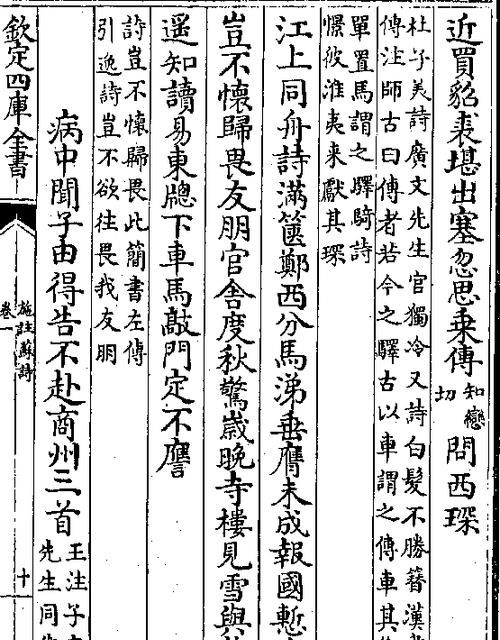 近買貂裘堪出塞忽思乗傳知戀切問西琛
杜子美詩廣文先生官獨冷又詩白髮不勝簪漢
傳注師古曰傳者若今之驛古以車謂之傳車其
單置馬謂之驛騎詩
憬彼淮夷来獻其琛
江上同舟詩滿篋鄭西分馬涕垂膺未成報國慙
豈不懷歸畏友朋官舎度秋驚歲晚寺樓見雪與
遥知讀易東牕下車馬敲門定不譍
詩豈不懷歸畏此簡書左傳
引逸詩豈不欲往畏我友朋
病中聞子由得告不赴商州三首
王注子
先生同
欽定四庫全書
施註蘇詩
卷一
十